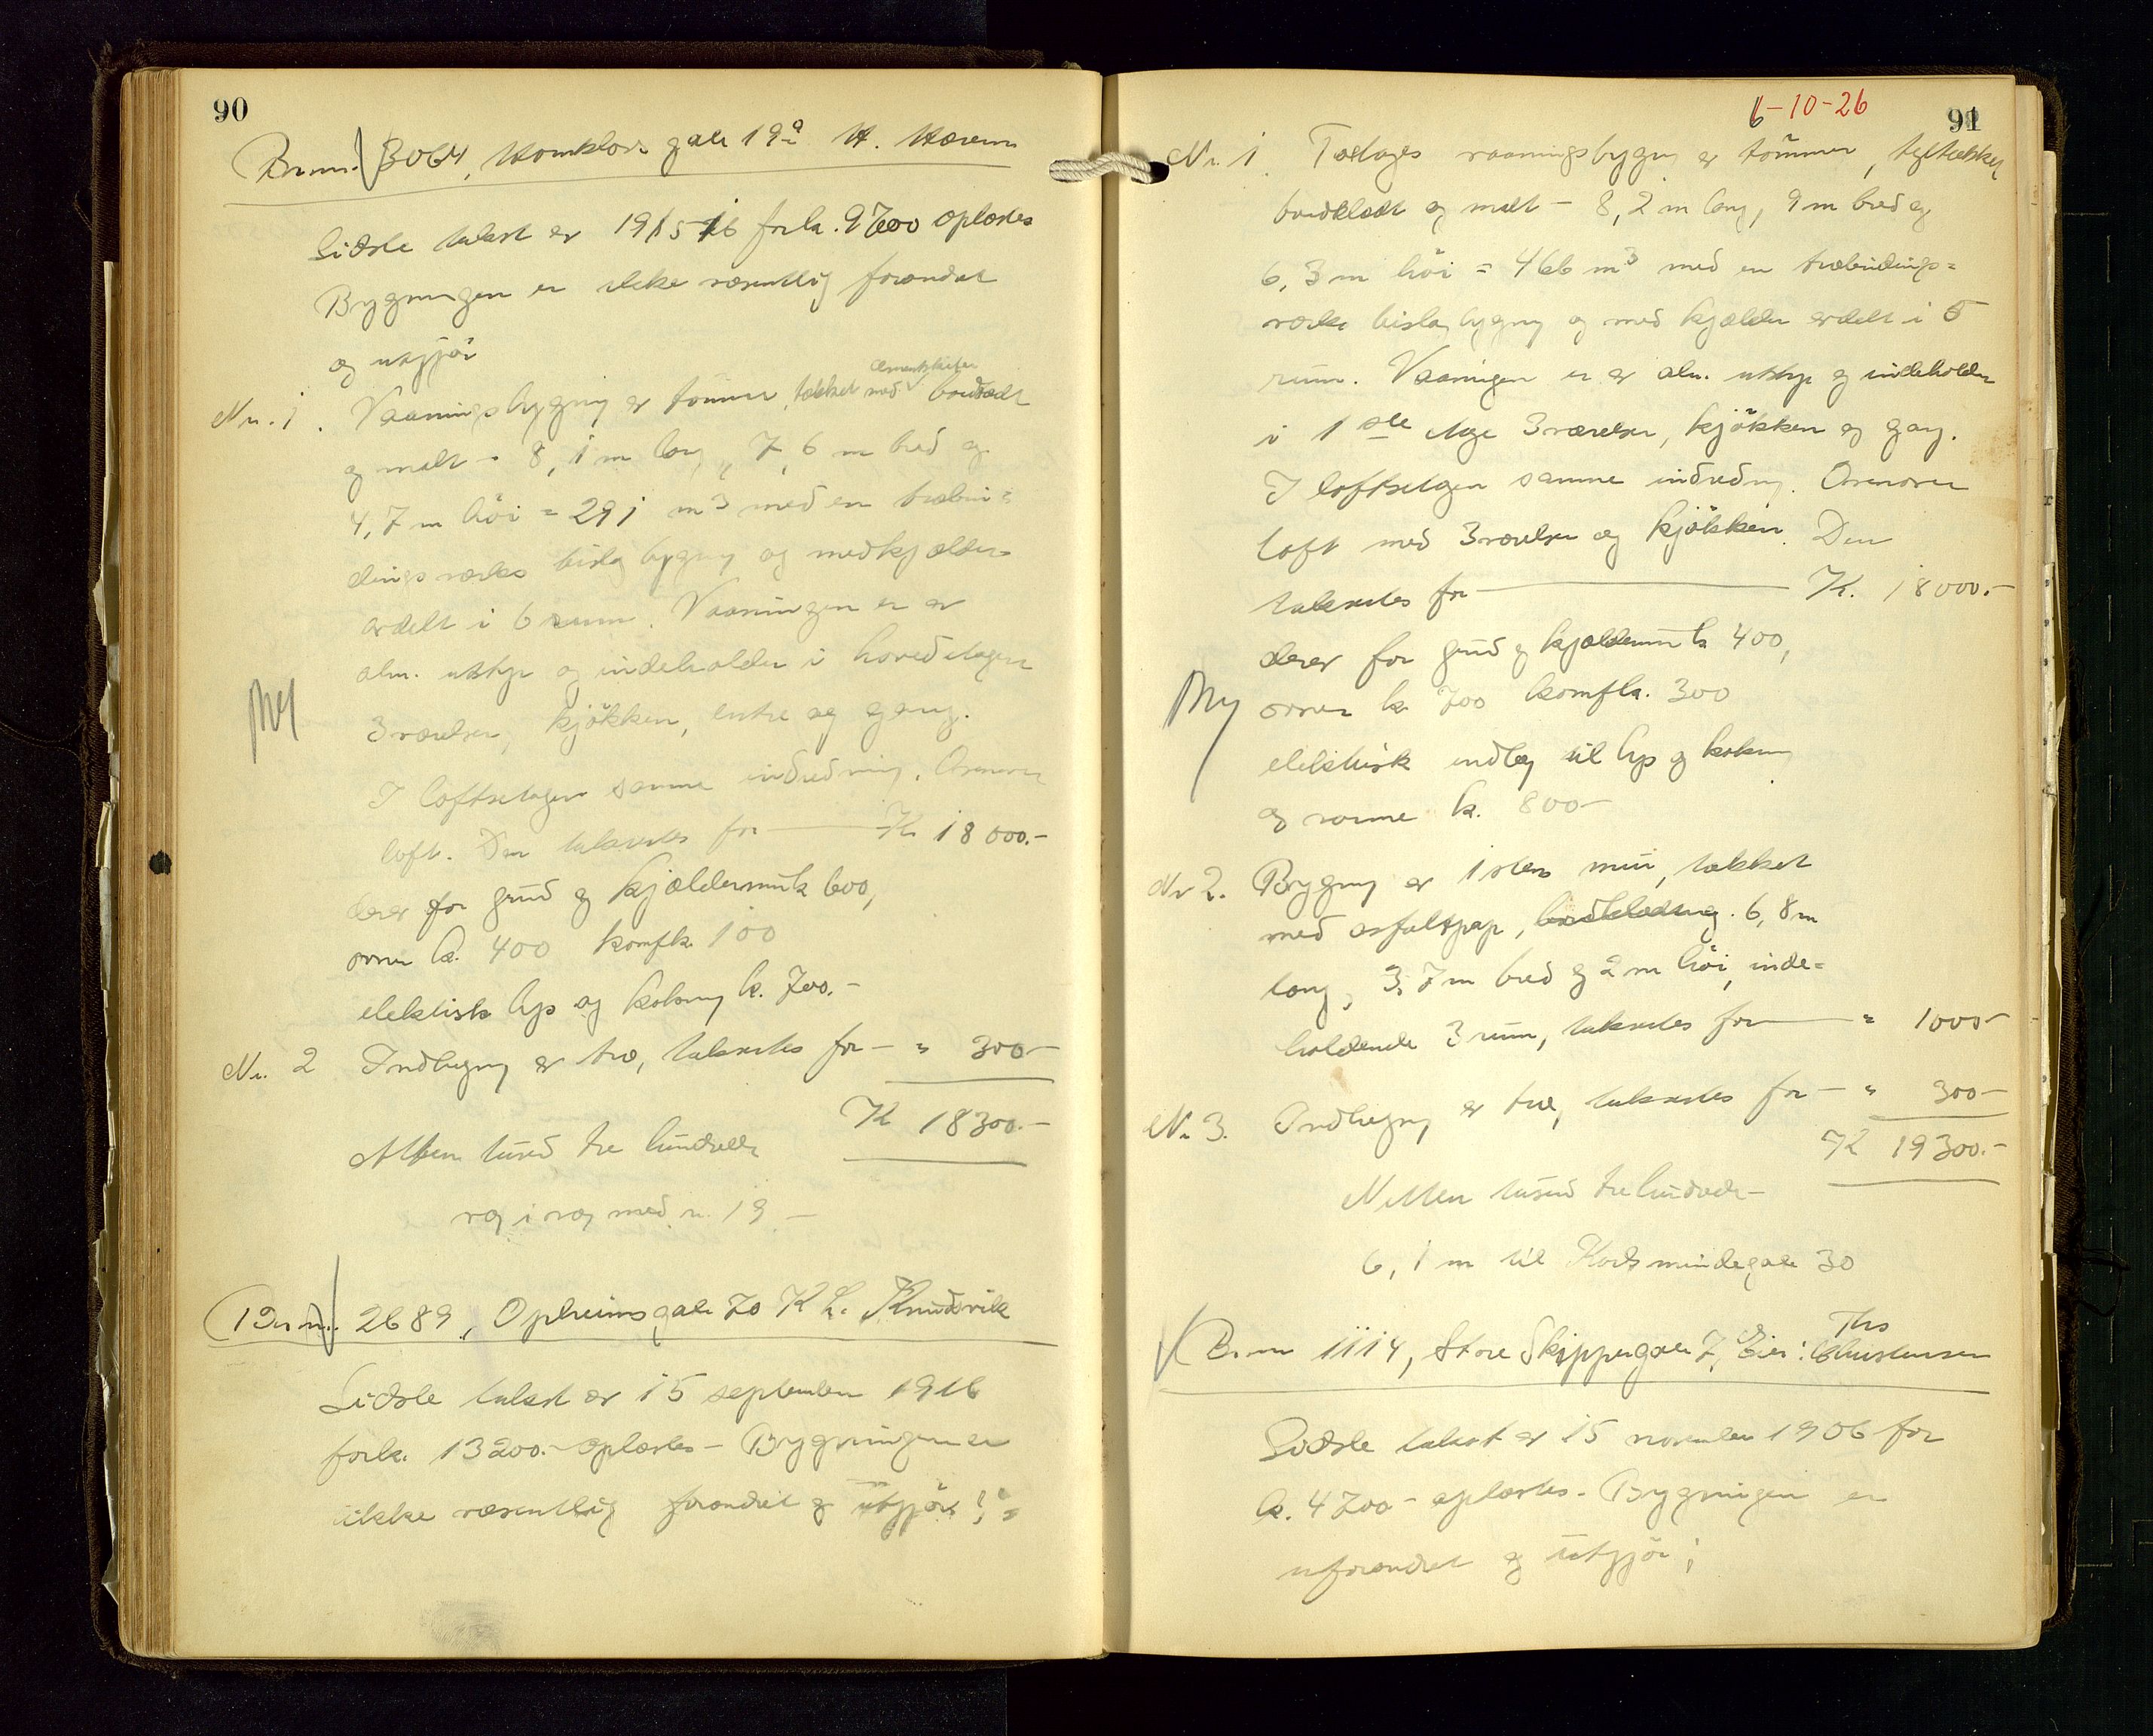 90
Br.nr. 3064, Homklovs gate 19a H.
Sidste takst er 19/5 16 for kr. 9700 oplæstes
Bygningen er ikke væsentlig forandret
og utgjör
Nr. 1. Vaaningsbygning av tömmer, tækket med cementskifer bordklædt
og malt - 8,1 m lang, 7,6 m bred og
4,7 m höi = 291 m3 med en træbin=
dingsverks bislagbygning og med kjælder
avdelt i 6 rum. Vaaningen er av
alm. utstyr og indeholder i hovedetagen
3 værelser, kjökken, entre og gang.
I loftsetagen samme indredning. Ovenover
loft. Den takseres for — K. 18000.-
derav for grund og kjældermur k 600,
ovner k. 400 komf k. 100
elektrisk lys og kokning k. 700.-
Nr. 2 Indhegning av træ, takseres for — " 300.-
K 18300.-
Atten tusind tre hundrede
væg i væg med nr. 19 -
Br.nr. 2689, Opheimsgate 70 K L. Knudsvik
Sidste takst er 15 september 1916
for k. 13200.- oplæstes - Bygningen er
ikke væsentlig forandret og utgjör:
6-10-26
91
Nr. 1. Toetages vaaningsbygning av tömmer, tegltækket
bordklædt og malt - 8,2 m lang, 9 m bred og
6,3 m höi = 466 m3 med en træbindings=
verks bislagbygning og med kjælder avdelt i 5
rum. Vaaningen er av alm. utstyr og indeholder
i 1ste etage 3 værelser, kjökken og gang.
I loftsetagen samme indredning. Ovenover
loft med 3 værelser og kjökken. Den
takseres for — K. 18000.-
derav for grund og kjældermur k 400,
ovner k. 700 komf k. 300
elektrisk indlæg til lys og kokning
og varme k. 800-
Nr 2. Bygning av 1 stens mur, tækket
med asfaltpap, bordklædning. 6,8 m
lang, 3,7 m bred og 2 m höi, inde=
holdende 3 rum, takseres for — " 1000-
Nr. 3. Indhegning av træ, takseres for — " 300-
K 19300.-
Nitten tusind tre hundrede -
6,1 m til Hodsmindegate 30
Br.nr 1114, Store Skippergate 7, Eier: Ths Christensen
Sidste takst er 15 november 1906 for
k. 4700- oplæstes. Bygningen er
uforandret og utgjör;